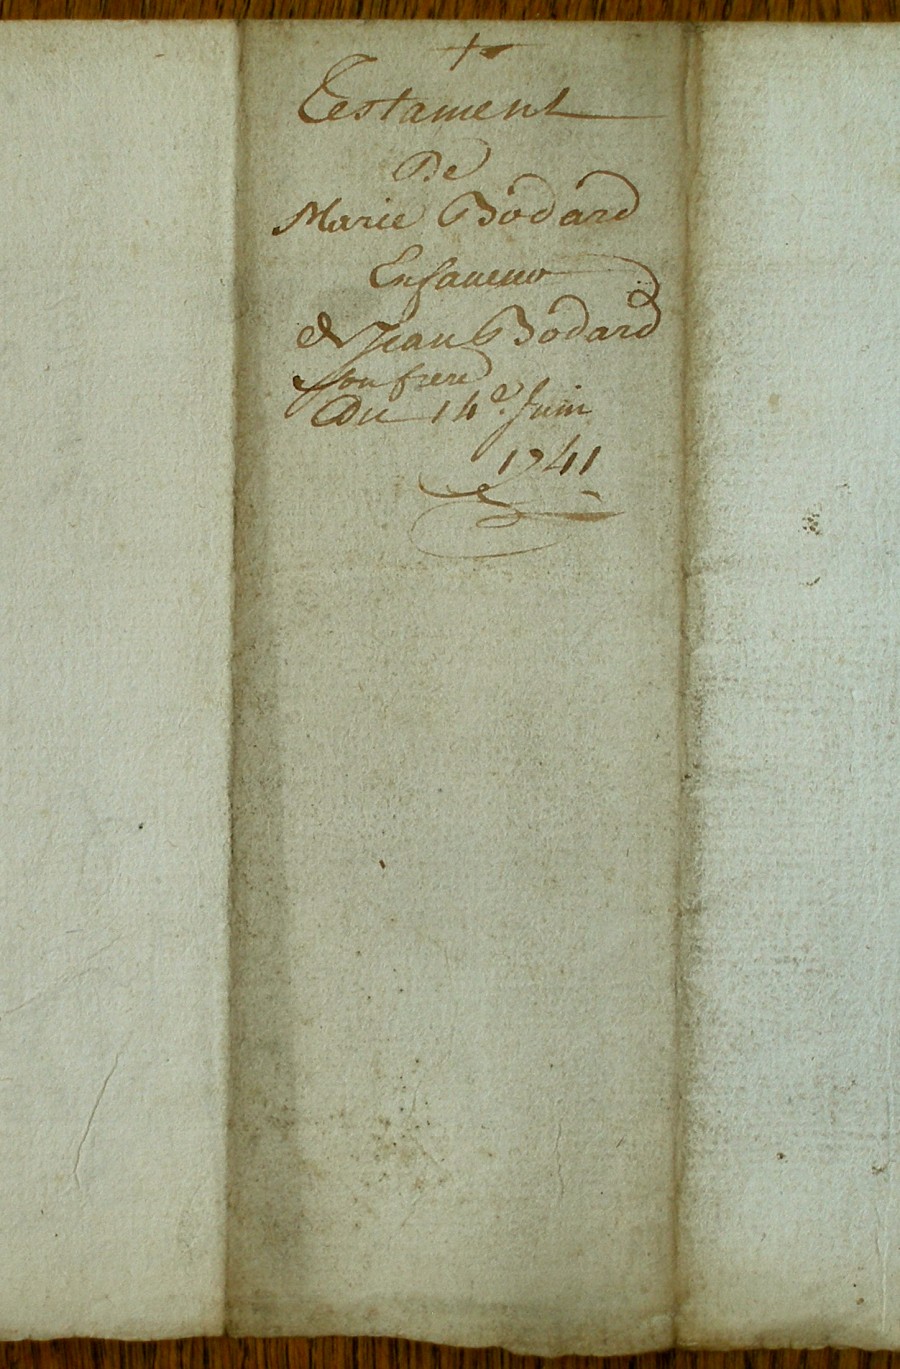 Testament
De
Marie Bodard
En faveur
de Jean Bodard
son frere
Du 14e. Juin
1741